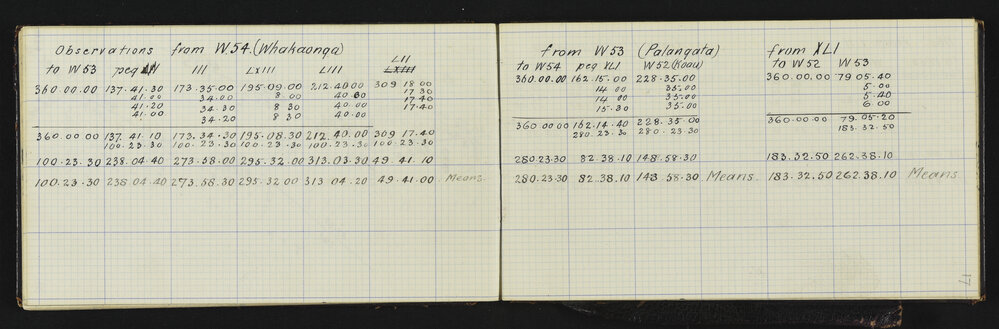 Observations from W54. (Whakaonga)
LII
to W53 peg III LXIII LIII LXIII
360.00.00 137.41.30 173.35.00 195.09.00 212.40.00 309 18.00
41.00 34.00 8 00 40 30 17 30
41.20 34.30 8 30 40.00 17.40
41.00 34.20 8 30 40.00 17.40
360.00 00 137. 41.10 173.34.30 195.08.30 212.40.00 309 17.40
100.23.30 100.23.30 100.23.30 100.23.30 100.23.30
100.23.30 238.04.40 273.58.00 295.32.00 313.03.30 49.41.10
100.23.30 238 04.40 273.58.30 295.32.00 313 04.20 49.41.00 Means.
from W53 (Palangata)
to W54 peg XLI W52 (Koau)
360.00.00 162.15.00 228.35.00
14 00 35.00
14 00 35.00
15.30 35.00
360 00 00 162.14.40 228.35 00
280.23.30 280.23.30
280.23.30 82.38.10 148.58.30
280.23.30 82.38.10 148.58.30 Means.
from XLI
to W52 W53
360.00.00 79 05.40
5 00
5 40
6 00
360.00.00 79.05.20
183.32.50
183.32.50 262.38.10
183.32.50 262.38.10 Means
17